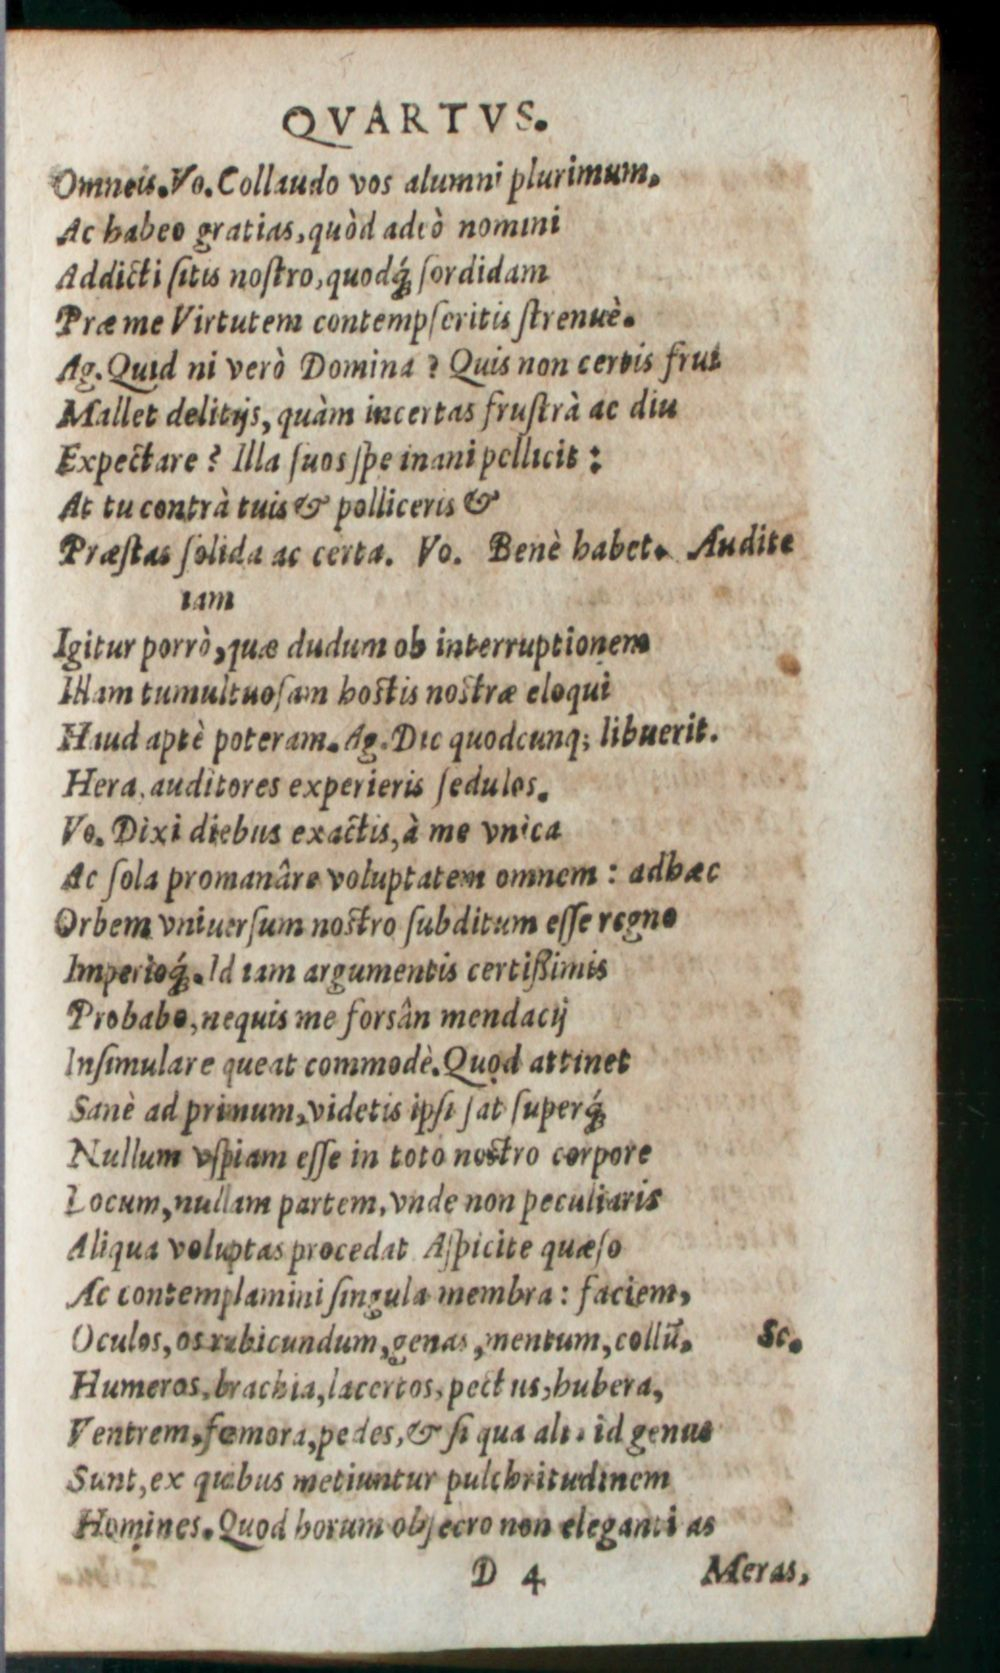 QVARTVS.
Omneis. Vo. Collaudo vos alumni plurimum,
Ac habeo gratias, quòd adeò nomini
Addicti ſitis noſtro, quodq́; ſordidam
Præ me Virtutem contempſeritis ſtrenuè.
Ag. Quid ni verò Domina? Quis non certis frui
Mallet delitijs, quàm incertas fruſtrà ac diu
Expectare? Illa ſuos ſpe inani pellicit:
At tu contrà tuis & polliceris &
Præſtas ſolida ac certa. Vo. Benè habet. Audite
iam
Igitur porrò, quæ dudum ob interruptionem
Illam tumultuoſam hoſtis noſtræ eloqui
Haud aptè poteram. Ag. Dic quodcunq; libuerit.
Hera, auditores experieris ſedulos.
Vo. Dixi diebus exactis, à me vnica
Ac ſola promanâre voluptatem omnem: adhæc
Orbem vniuerſum noſtro ſubditum eſſe regno
Imperioq́;. Id iam argumentis certißimis
Probabo, nequis me forsân mendacij
Inſimulare queat commodè. Quod attinet
Sanè ad primum, videtis ipſi ſat ſuperq́;
Nullum vſpiam eſſe in toto noſtro corpore
Locum, nullam partem, vnde non peculiaris
Aliqua voluptas procedat Aſpicite quæſo
Ac contemplamini ſingula membra: faciem,
Oculos, os rubicundum, genas, mentum, collū, Sc.
Humeros, brachia, lacertos, pectus, hubera,
Ventrem, fœmora, pedes, & ſi qua alia id genus
Sunt, ex quibus metiuntur pulchritudinem
Homines. Quod horum obſecro non eleganti as
D 4 Meras,